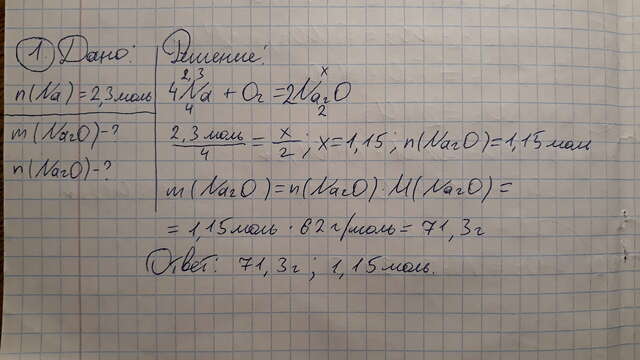 1. Дано:
n(Na)=2,3 моль
m(Na₂O)-?
n(Na₂O)-?
Решение:
2,3 x
4Na + O₂ = 2Na₂O
4 2
2,3 моль/4 = x/2; x=1,15; n(Na₂O)=1,15 моль
m(Na₂O)=n(Na₂O)·M(Na₂O)=
=1,15 моль · 62 г/моль = 71,3 г
Ответ: 71,3 г; 1,15 моль.